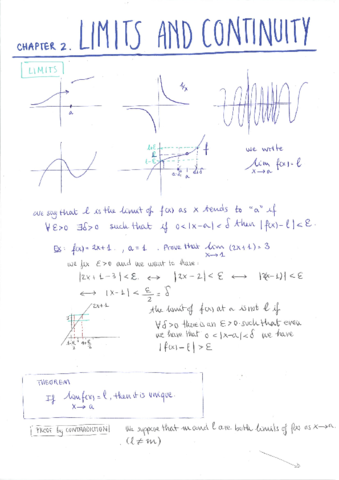 CHAPTER 2. LIMITS AND CONTINUITY
LIMITS
1/x
a
l+ε
l
l-ε
f
we write
lim f(x) = l
x→a
we say that l is the limit of f(x) as x tends to "a" if
∀ε>0 ∃δ>0 such that if 0<|x-a|<δ then |f(x)-l|<ε.
f(x)=2x+1, a=1. Prove that lim (2x+1)=3
x→1
we fix ε>0 and we want to have:
|2x+1-3|<ε ⟷ |2x-2|<ε ⟷ |2(x-1)|<ε
⟷ |x-1|<ε/2=δ
2x+1
the limit of f(x) at a is not l if
∀δ>0 there is an ε>0 such that even
we have that 0<|x-a|<δ we have
|f(x)-l|>ε
THEOREM
If lim f(x)=l, then it is unique.
x→a
PROOF by CONTRADICTION
We suppose that m and l are both limits of f(x) as x→a.
(l≠m)